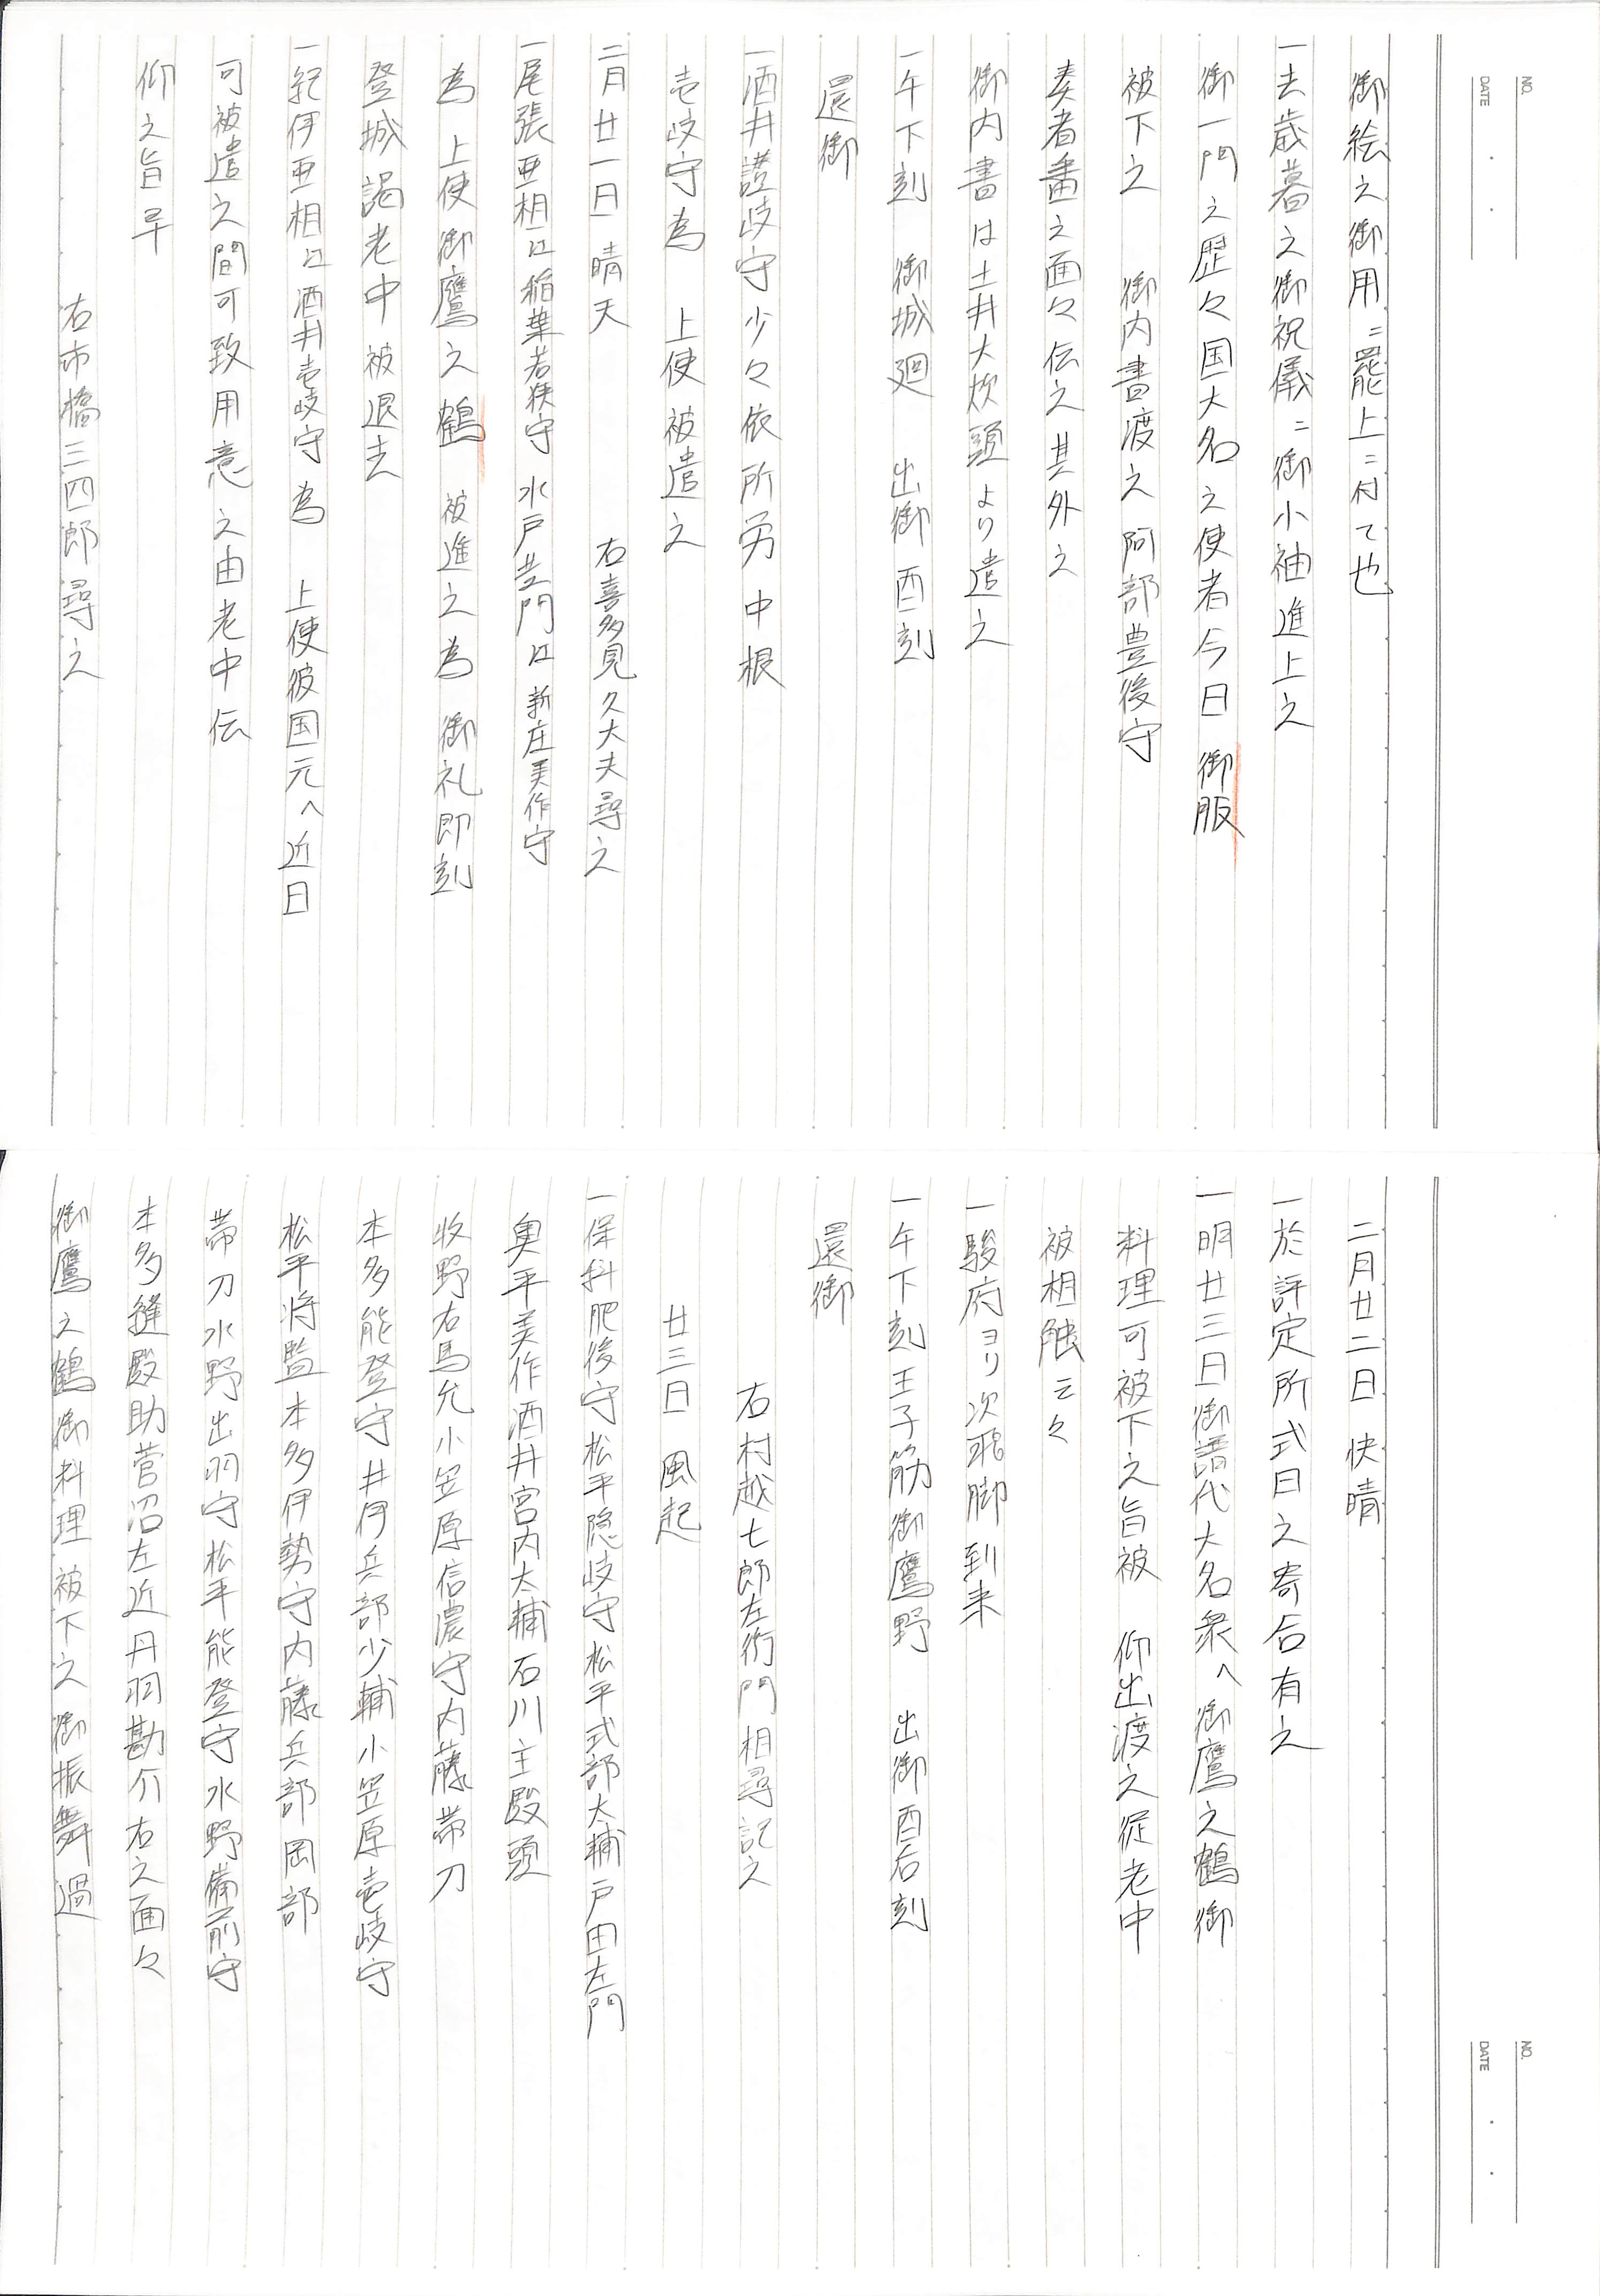 NO.
DATE
御絵之御用ニ罷上ニ付て也
一去歳暮之御祝儀ニ御小袖進上之
御一門之歴々国大名之使者今日 御服
被下之 御内書渡之阿部豊後守
奏者番之面々伝之其外之
御内書は土井大炊頭より遣之
一午下刻 御城廻 出御酉刻
還御
一酒井讃岐守少々依所労中根
壱岐守為 上使被遣之
二月廿一日晴天 右喜多見久大夫尋之
一尾張亜相江稲葉若狭守水戸黄門江新庄美作守
為 上使御鷹之鶴 被進之為 御礼即刻
登城謁老中被退去
一紀伊亜相江酒井壱岐守為 上使彼国元へ近日
可被遣之間可致用意之由老中伝
仰之旨早
右市橋三四郎尋之
NO.
DATE
二月廿二日快晴
一於評定所式日之寄合有之
一明廿三日御譜代大名衆へ御鷹之鶴御
料理可被下之旨被 仰出渡之従老中
被相触云々
一駿府ヨリ次飛脚到来
一午下刻王子筋御鷹野 出御酉后刻
還御
右村越七郎左衛門相尋記之
廿三日 風起
一保科肥後守松平隠岐守松平式部太輔戸田左門
奥平美作酒井宮内太輔石川主殿頭
牧野右馬允小笠原信濃守内藤帯刀
本多能登守井伊兵部少輔小笠原壱岐守
松平将監本多伊勢守内藤兵部岡部
帯刀水野出羽守松平能登守水野備前守
本多縫殿助菅沼左近丹羽勘介右之面々
御鷹之鶴御料理被下之御振舞過